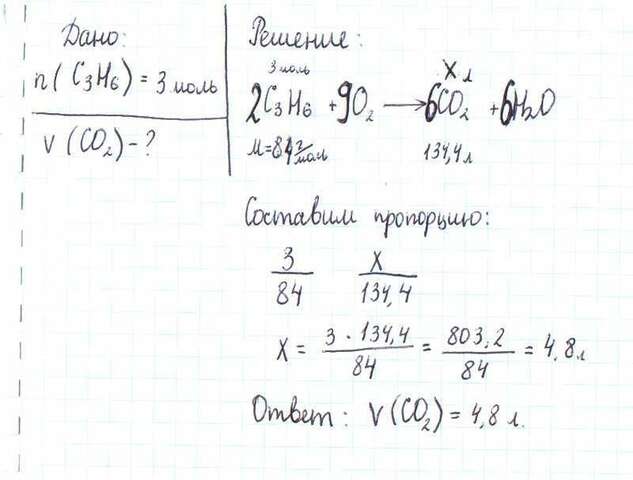 Дано:
n(C₃H₆) = 3 моль
V(CO₂) - ?
Решение:
3 моль X л
2C₃H₆ + 9O₂ → 6CO₂ + 6H₂O
M=84 г/моль 134,4 л
Составим пропорцию:
3/84 X/134,4
X = 3 · 134,4/84 = 803,2/84 = 4,8 л
Ответ: V(CO₂) = 4,8 л.